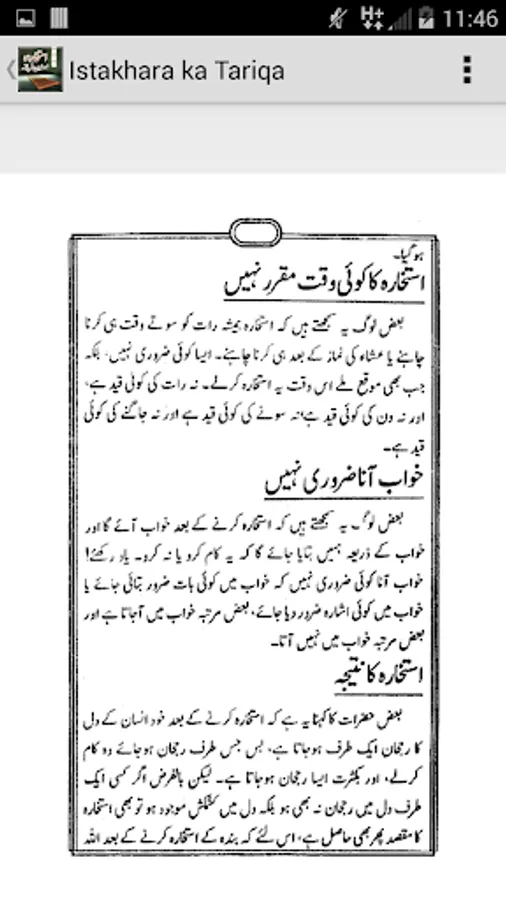 H+ 11:46
Istakhara ka Tariqa
ہو گیا۔
استخارہ کا کوئی وقت مقرر نہیں
بعض لوگ یہ سمجھتے ہیں کہ استخارہ ہمیشہ رات کو سوتے وقت ہی کرنا
چاہئے یا عشاء کی نماز کے بعد ہی کرنا چاہئے۔ ایسا کوئی ضروری نہیں، بلکہ
جب بھی موقع ملے اس وقت یہ استخارہ کرلے۔ نہ رات کی کوئی قید ہے،
اور نہ دن کی کوئی قید ہے، نہ سونے کی کوئی قید ہے اور نہ جاگنے کی کوئی
قید ہے۔
خواب آنا ضروری نہیں
بعض لوگ یہ سمجھتے ہیں کہ استخارہ کرنے کے بعد خواب آئے گا اور
خواب کے ذریعہ ہمیں بتایا جائے گا کہ یہ کام کرو یا نہ کرو۔ یاد رکھئے!
خواب آنا کوئی ضروری نہیں کہ خواب میں کوئی بات ضرور بتائی جائے یا
خواب میں کوئی اشارہ ضرور دیا جائے، بعض مرتبہ خواب میں آجاتا ہے اور
بعض مرتبہ خواب میں نہیں آتا۔
استخارہ کا نتیجہ
بعض حضرات کا کہنا یہ ہے کہ استخارہ کرنے کے بعد خود انسان کے دل
کا رجحان ایک طرف ہو جاتا ہے، بس جس طرف رجحان ہو جائے وہ کام
کرلے، اور بکثرت ایسا رجحان ہو جاتا ہے۔ لیکن بالفرض اگر کسی ایک
طرف دل میں رجحان نہ بھی ہو بلکہ دل میں کشمکش موجود ہو تو بھی استخارہ
کا مقصد پھر بھی حاصل ہے، اس لئے کہ بندہ کے استخارہ کرنے کے بعد اللہ